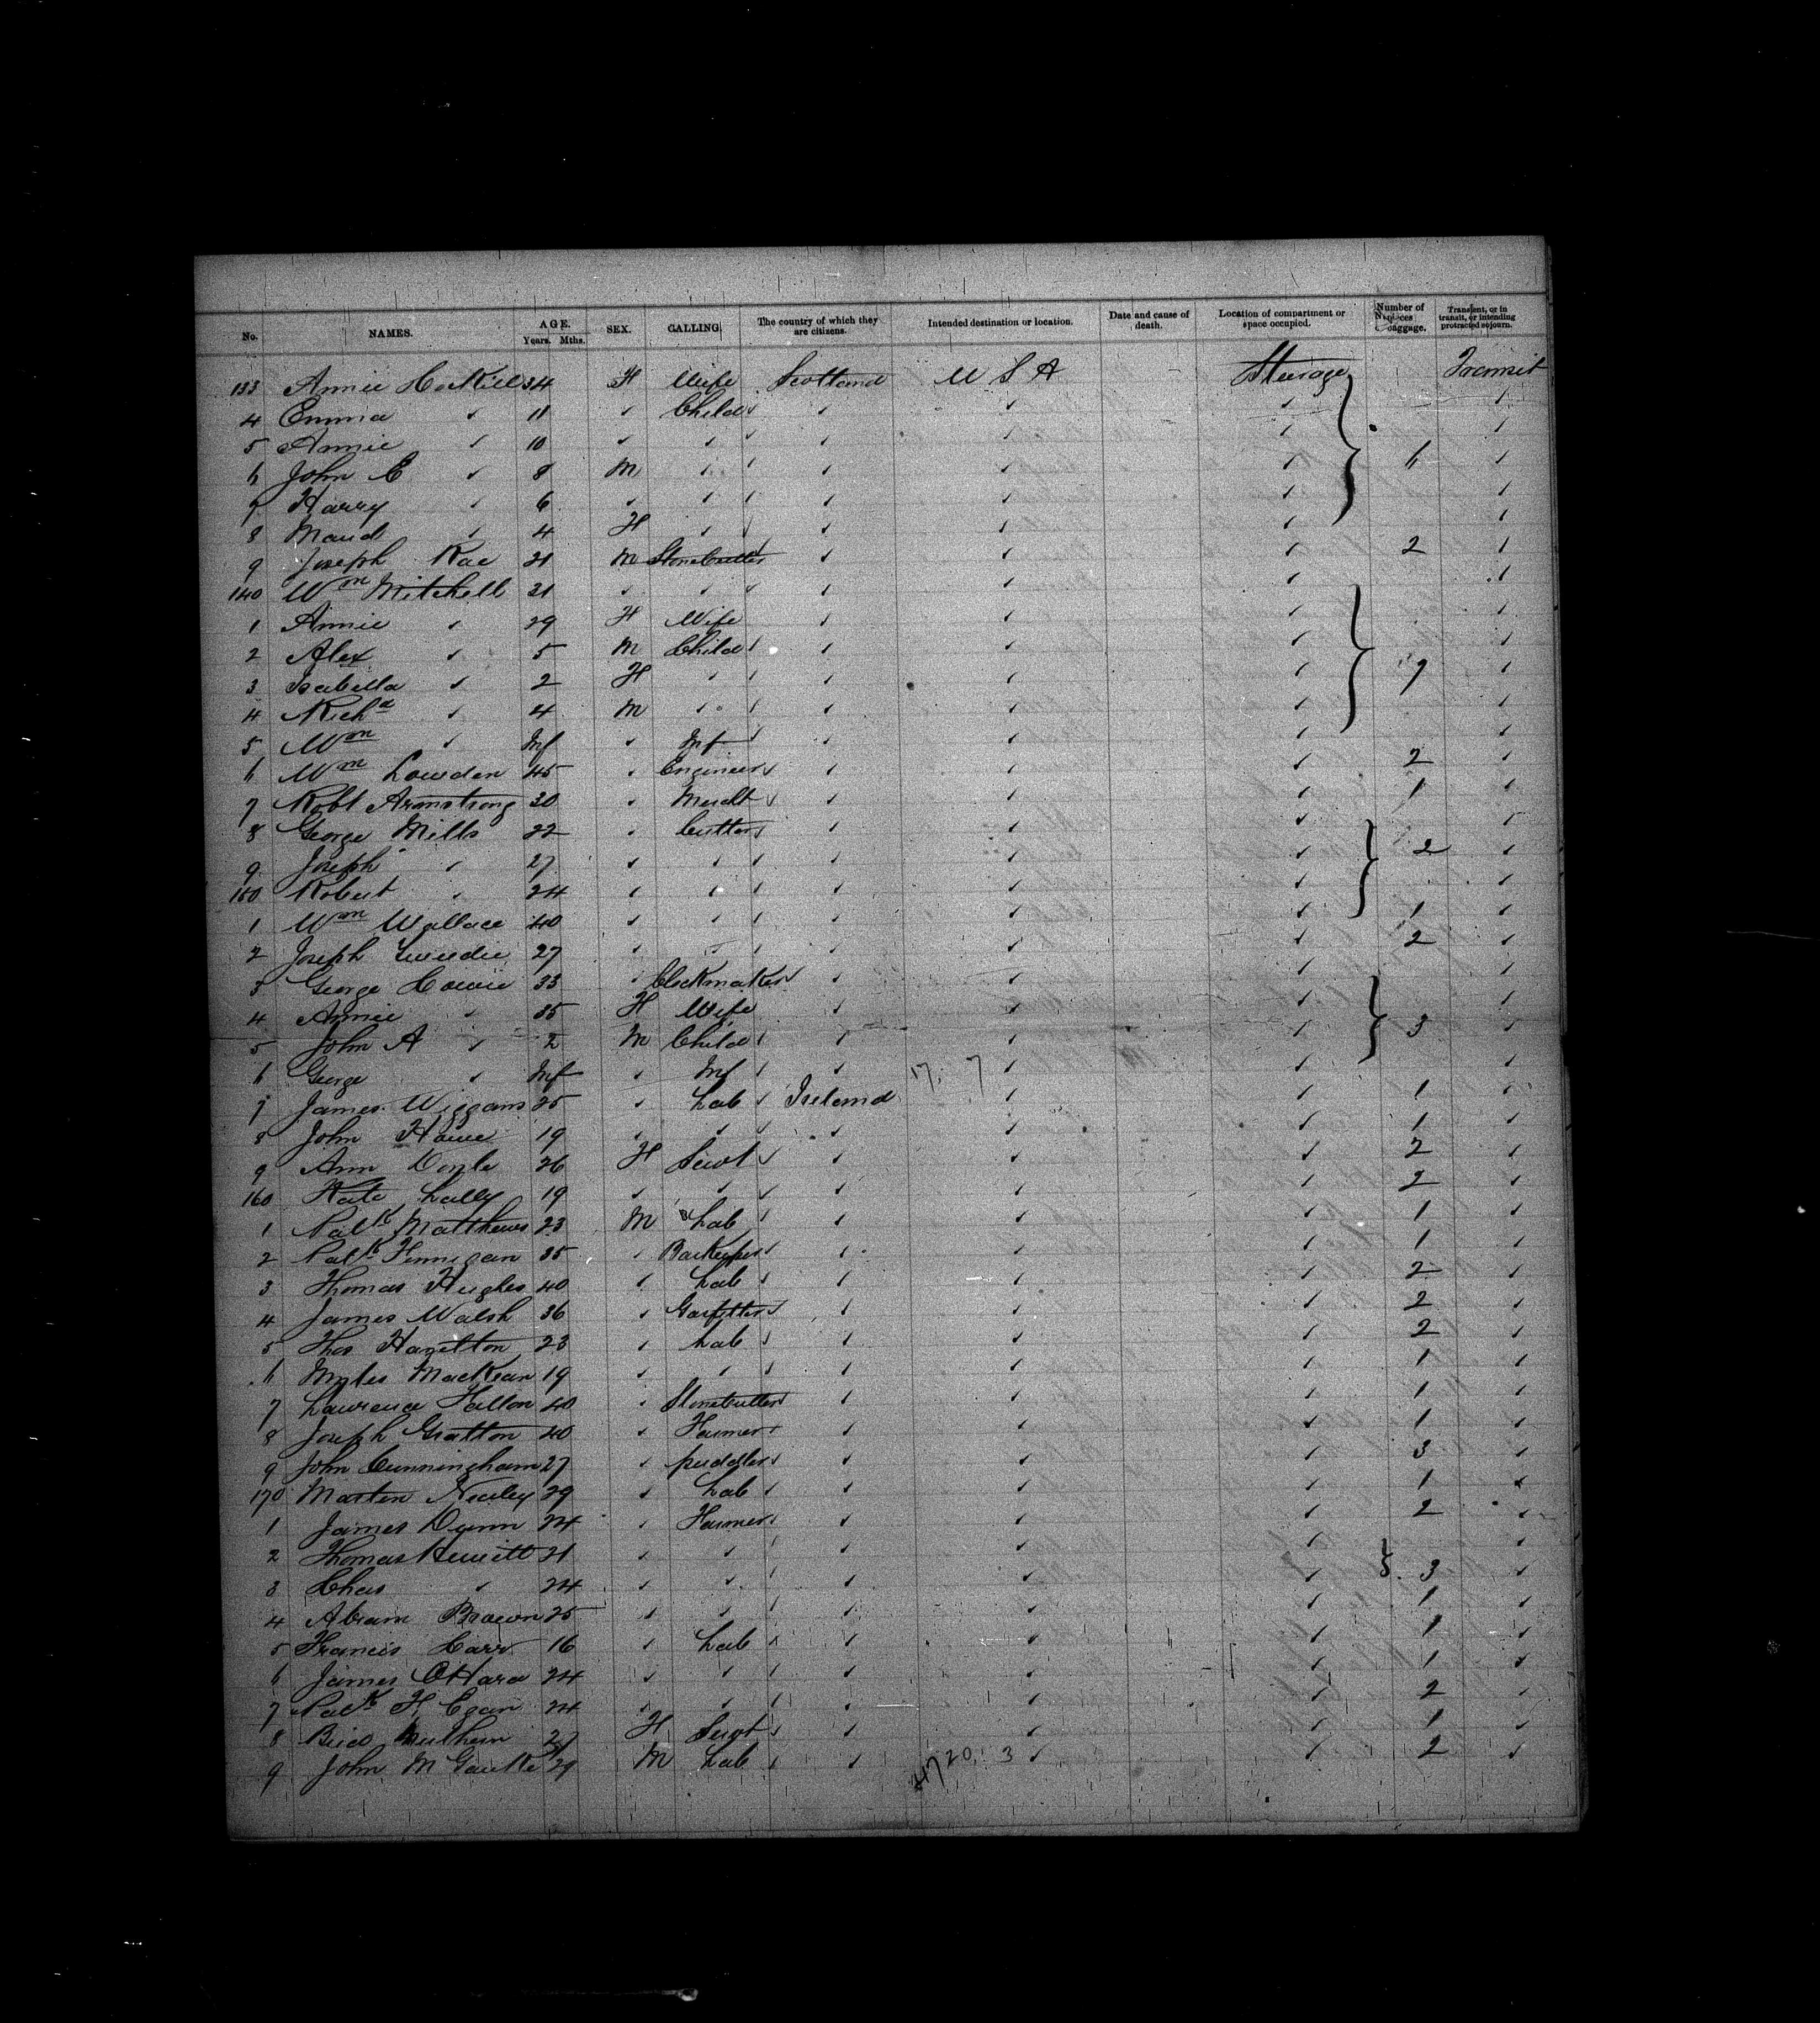 No. NAMES. AGE. Years. Mths. SEX. CALLING. The country of which they are citizens. Intended destination or location. Date and cause of death. Location of compartment or space occupied. Number of pieces baggage. Transient, or in transit, or intending protracted sojourn.
133 Annie 34 F Wife Scotland U S A Steerage Transit
4 Emma ✓ 11 ✓ Child ✓ ✓ ✓ ✓ ✓
5 Annie ✓ 10 ✓ ✓ ✓ ✓ ✓ ✓ ✓
6 John C ✓ 8 M ✓ ✓ ✓ ✓ ✓ 6 ✓
7 Harry ✓ 6 ✓ ✓ ✓ ✓ ✓ ✓ ✓
8 Maud ✓ 4 F ✓ ✓ ✓ ✓ ✓ ✓
9 Joseph Rae 21 M Stonecutter ✓ ✓ ✓ ✓ 2 ✓
140 Wm Mitchell 31 ✓ ✓ ✓ ✓ ✓ ✓ ✓
1 Annie ✓ 29 F Wife ✓ ✓ ✓ ✓
2 Alex ✓ 5 M Child ✓ ✓ ✓ ✓ ✓
3 Isabella ✓ 2 F ✓ ✓ ✓ ✓ ✓ 7 ✓
4 Richd ✓ 4 M ✓ ✓ ✓ ✓ ✓ ✓
5 Wm ✓ Inf ✓ Inf ✓ ✓ ✓ ✓ ✓
6 Wm Lowden 45 ✓ Engineer ✓ ✓ ✓ ✓ 2 ✓
7 Robt Armstrong 30 ✓ Mercht ✓ ✓ ✓ ✓ 1 ✓
8 George Mills 22 ✓ Cutter ✓ ✓ ✓ ✓ ✓
9 Joseph ✓ 27 ✓ ✓ ✓ ✓ ✓ ✓ 2 ✓
150 Robert ✓ 24 ✓ ✓ ✓ ✓ ✓ ✓ ✓
1 Wm Wallace 40 ✓ ✓ ✓ ✓ ✓ ✓ 1 ✓
2 Joseph Tweedie 27 ✓ ✓ ✓ ✓ ✓ ✓ 2 ✓
3 George Cowie 33 ✓ Clockmaker ✓ ✓ ✓ ✓ ✓
4 Annie ✓ 35 F Wife ✓ ✓ ✓ ✓
5 John A ✓ 2 M Child ✓ ✓ ✓ ✓ 3 ✓
6 George ✓ Inf ✓ Inf ✓ ✓ 17. 7 ✓ ✓ ✓
7 James Wiggans 25 ✓ Lab ✓ Ireland ✓ ✓ 1 ✓
8 John Howe 19 ✓ ✓ ✓ ✓ ✓ ✓ 1 ✓
9 Ann Doyle 26 F Servt ✓ ✓ ✓ ✓ 2 ✓
160 Kate Lally 19 ✓ ✓ ✓ ✓ ✓ ✓ 2 ✓
1 Patk Matthews 23 M Lab ✓ ✓ ✓ ✓ 1 ✓
2 Patk Finnigan 35 ✓ Barkeeper ✓ ✓ ✓ ✓ 1 ✓
3 Thomas Hughes 40 ✓ Lab ✓ ✓ ✓ ✓ 2 ✓
4 James Walsh 36 ✓ Gasfitter ✓ ✓ ✓ ✓ 2 ✓
5 Thos Hazelton 23 ✓ Lab ✓ ✓ ✓ ✓ 2 ✓
6 Myles MacKean 19 ✓ ✓ ✓ ✓ ✓ ✓ 1 ✓
7 Lawrence Fallon 40 ✓ Stonecutter ✓ ✓ ✓ 1 ✓
8 Joseph Gratton 20 ✓ Farmer ✓ ✓ ✓ ✓ 1 ✓
9 John Cunningham 27 ✓ puddler ✓ ✓ ✓ ✓ 3 ✓
170 Marten 29 ✓ Lab ✓ ✓ ✓ ✓ 1 ✓
1 James Dunn 24 ✓ Farmer ✓ ✓ ✓ ✓ 2 ✓
2 Thomas Hewitt 21 ✓ ✓ ✓ ✓ ✓ ✓ ✓
3 Chas ✓ 24 ✓ ✓ ✓ ✓ ✓ ✓ 3 ✓
4 Abram Brown 25 ✓ ✓ ✓ ✓ ✓ ✓ 1 ✓
5 Francis Carr 16 ✓ Lab ✓ ✓ ✓ ✓ 1 ✓
6 James O'Hara 24 ✓ ✓ ✓ ✓ ✓ ✓ 1 ✓
7 Patk F Egan 24 ✓ ✓ ✓ ✓ ✓ ✓ 2 ✓
8 27 F Servt ✓ ✓ ✓ ✓ 1 ✓
9 John 29 M Lab ✓ ✓ 47 20. 3 ✓ ✓ 2 ✓